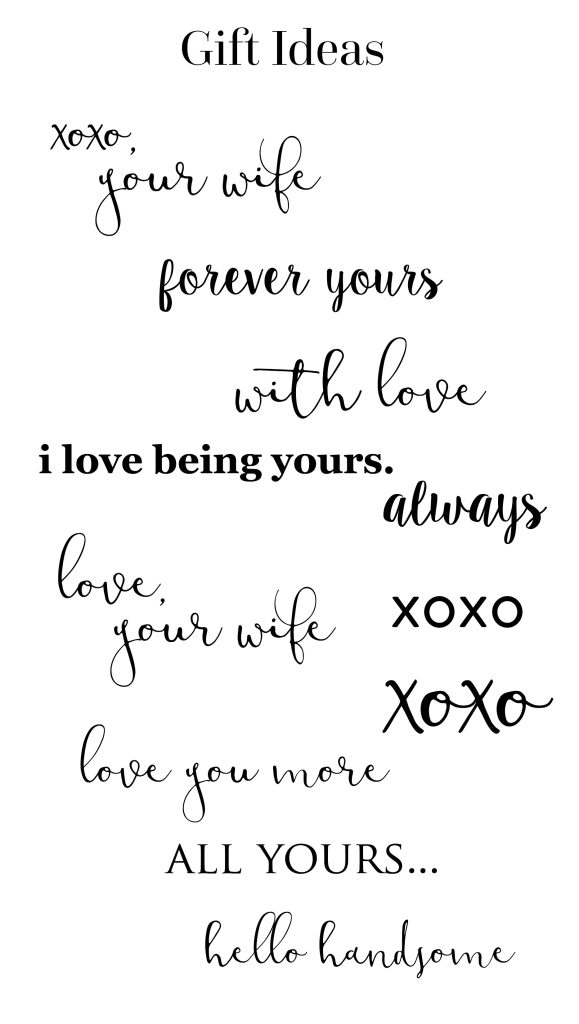 Gift Ideas
xoxo,
your wife
forever yours
with love
i love being yours.
always
love,
your wife
xoxo
xoxo
love you more
ALL YOURS...
hello handsome